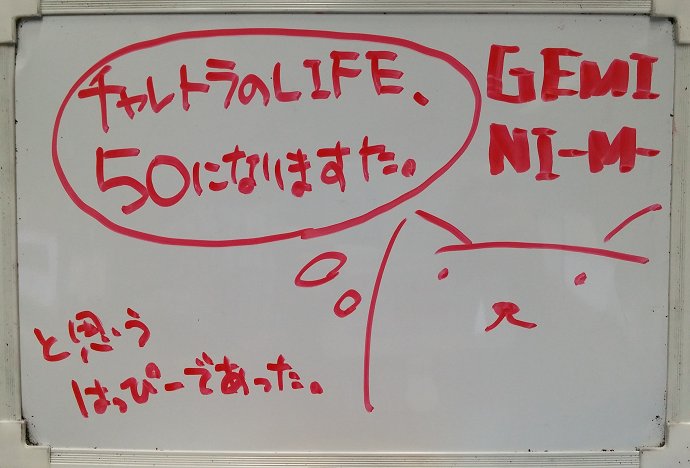 チャレトラのLIFE、
50になりますた。
GEMI
NI-M-
と思う
はっぴーであった。